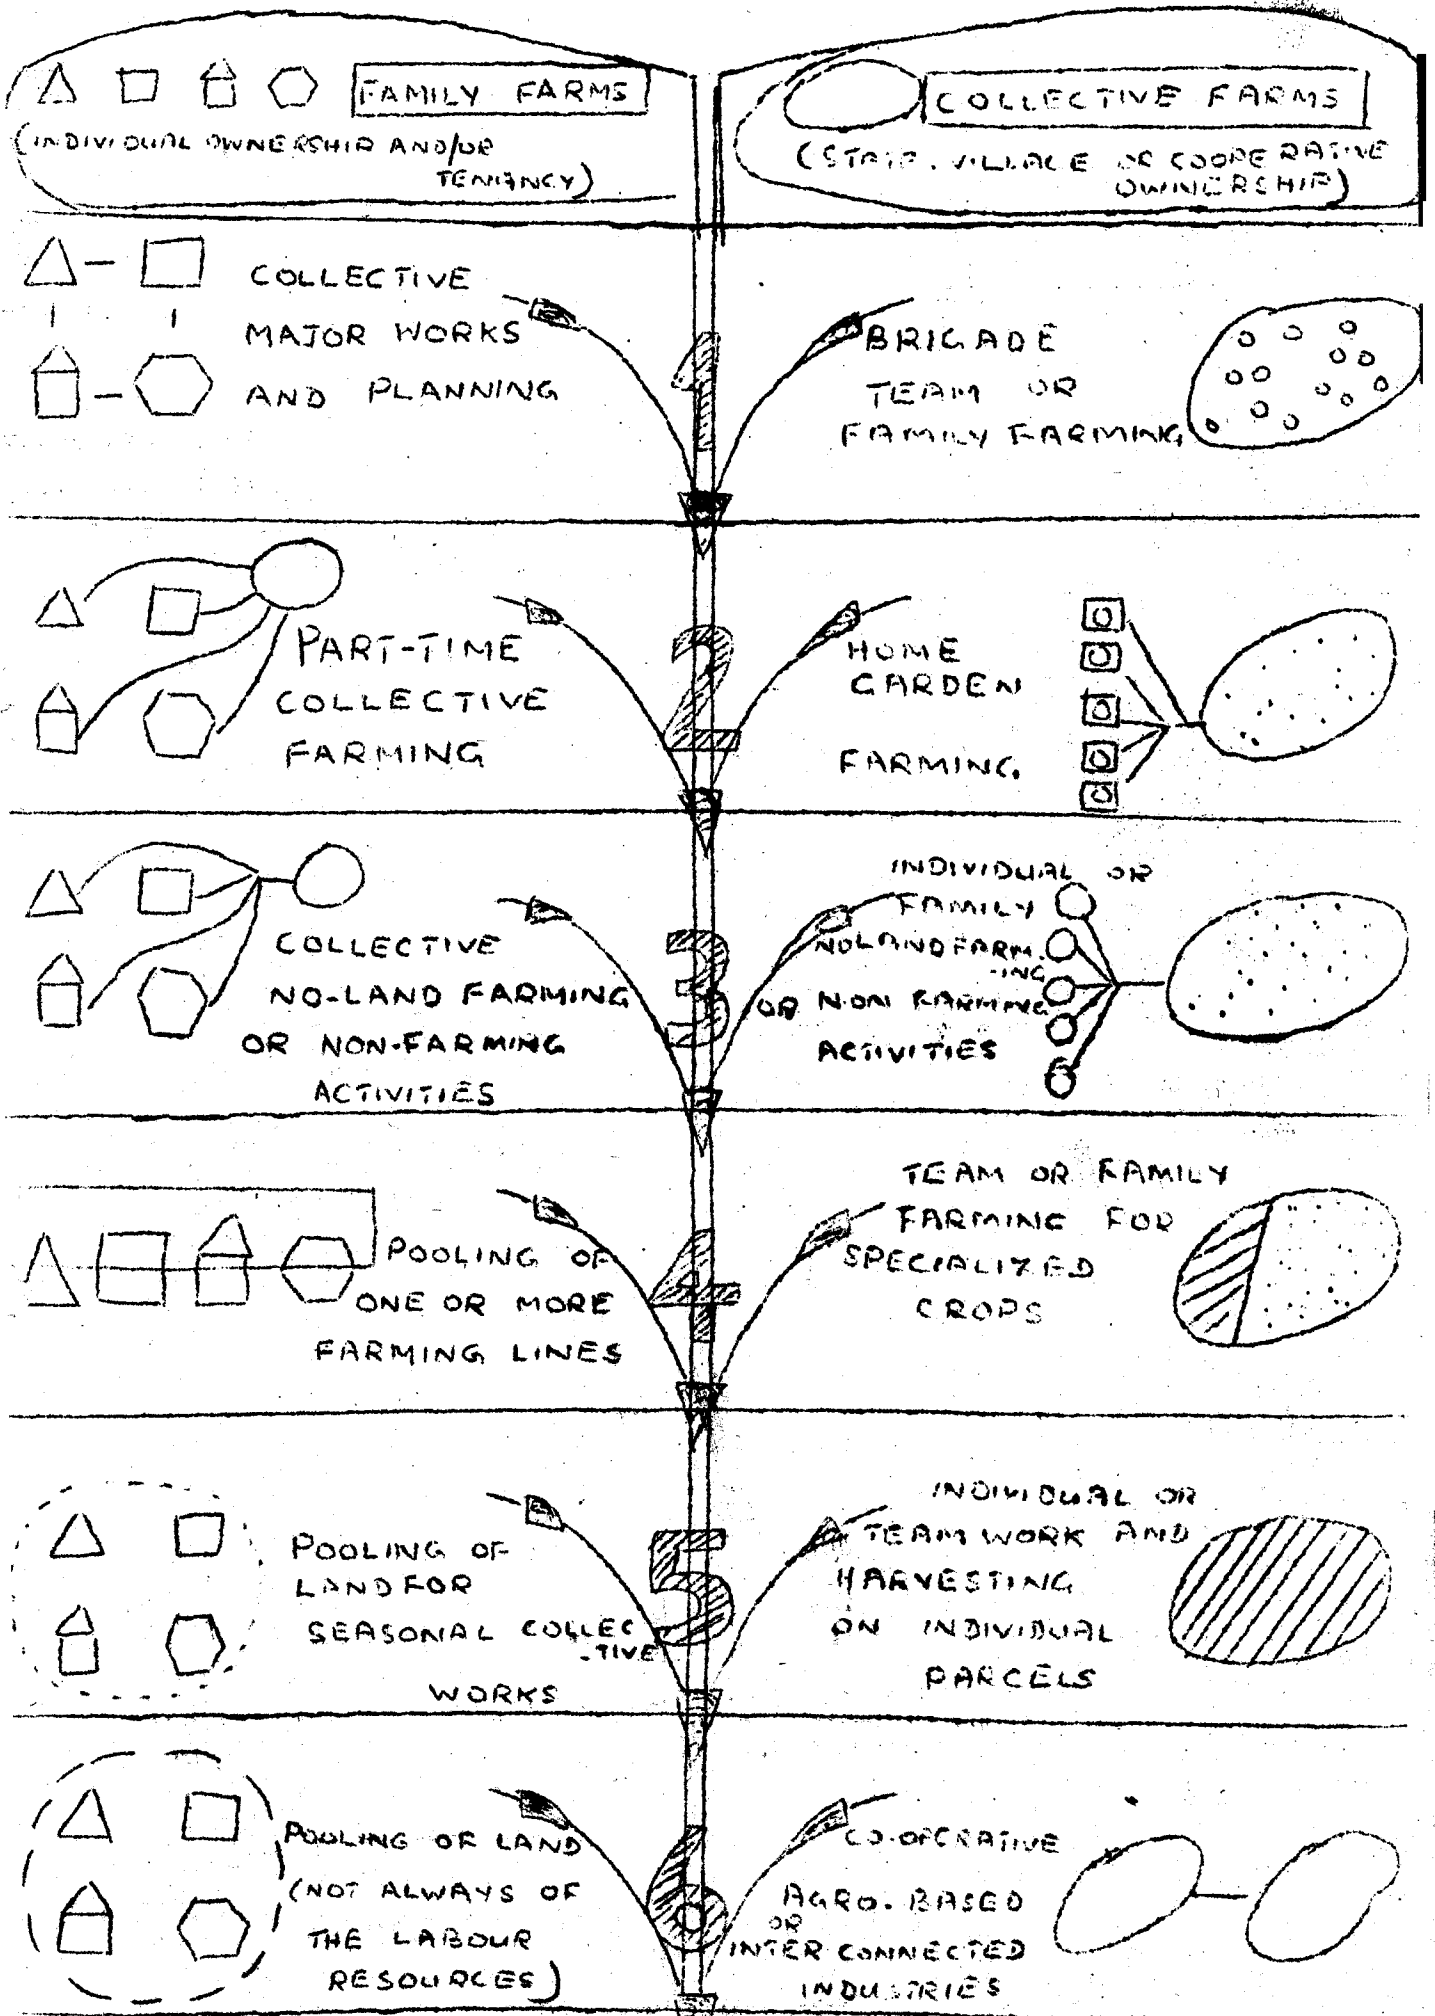 FAMILY FARMS
(INDIVIDUAL OWNERSHIP AND/OR
TENANCY)
COLLECTIVE FARMS
(STATE, VILLAGE OR COOPERATIVE
OWNERSHIP)
COLLECTIVE
MAJOR WORKS
AND PLANNING
1
BRIGADE
TEAM OR
FAMILY FARMING
PART-TIME
COLLECTIVE
FARMING
2
HOME
GARDEN
FARMING
COLLECTIVE
NO-LAND FARMING
OR NON-FARMING
ACTIVITIES
3
INDIVIDUAL OR
FAMILY
NO LAND FARM.
-ING
OR NON FARMING
ACTIVITIES
POOLING OF
ONE OR MORE
FARMING LINES
4
TEAM OR FAMILY
FARMING FOR
SPECIALIZED
CROPS
POOLING OF
LAND FOR
SEASONAL COLLEC
-TIVE
WORKS
5
INDIVIDUAL OR
TEAM WORK AND
HARVESTING
ON INDIVIDUAL
PARCELS
POOLING OF LAND
(NOT ALWAYS OF
THE LABOUR
RESOURCES)
6
CO-OPERATIVE
AGRO-BASED
OR
INTER CONNECTED
INDUSTRIES